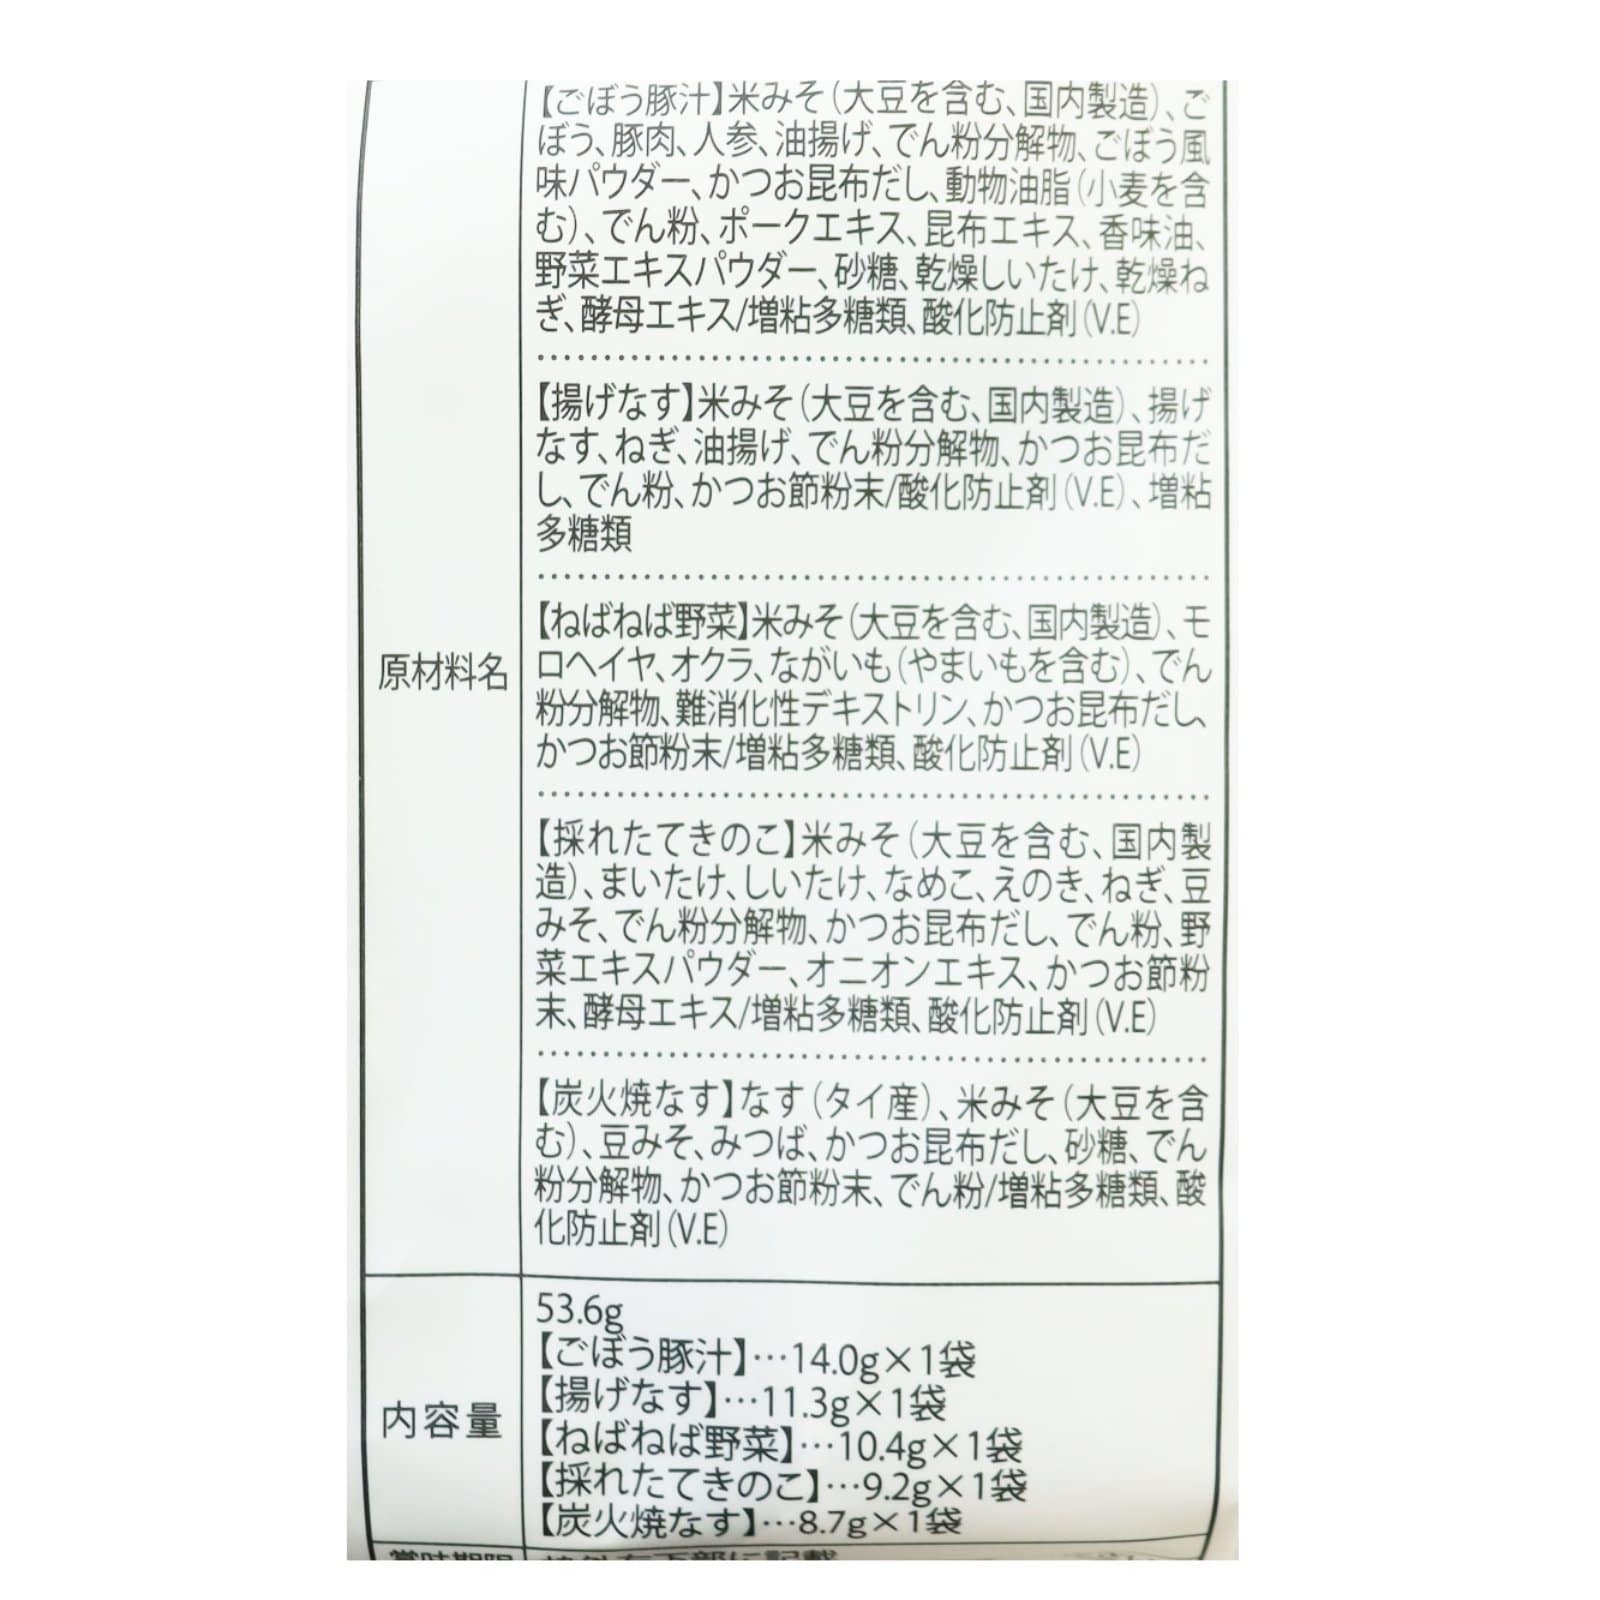 【ごぼう豚汁】米みそ（大豆を含む、国内製造）、ご
ぼう、豚肉、人参、油揚げ、でん粉分解物、ごぼう風
味パウダー、かつお昆布だし、動物油脂（小麦を含
む）、でん粉、ポークエキス、昆布エキス、香味油、
野菜エキスパウダー、砂糖、乾燥しいたけ、乾燥ね
ぎ、酵母エキス/増粘多糖類、酸化防止剤（V.E）
【揚げなす】米みそ（大豆を含む、国内製造）、揚げ
なす、ねぎ、油揚げ、でん粉分解物、かつお昆布だ
し、でん粉、かつお節粉末/酸化防止剤（V.E）、増粘
多糖類
【ねばねば野菜】米みそ（大豆を含む、国内製造）、モ
原材料名
ロヘイヤ、オクラ、ながいも（やまいもを含む）、でん
粉分解物、難消化性デキストリン、かつお昆布だし、
かつお節粉末/増粘多糖類、酸化防止剤（V.E）
【採れたてきのこ】米みそ（大豆を含む、国内製
造）、まいたけ、しいたけ、なめこ、えのき、ねぎ、豆
みそ、でん粉分解物、かつお昆布だし、でん粉、野
菜エキスパウダー、オニオンエキス、かつお節粉
末、酵母エキス/増粘多糖類、酸化防止剤（V.E）
【炭火焼なす】なす（タイ産）、米みそ（大豆を含
む）、豆みそ、みつば、かつお昆布だし、砂糖、でん
粉分解物、かつお節粉末、でん粉/増粘多糖類、酸
化防止剤（V.E）
内容量
53.6g
【ごぼう豚汁】…14.0g×1袋
【揚げなす】…11.3g×1袋
【ねばねば野菜】…10.4g×1袋
【採れたてきのこ】…9.2g×1袋
【炭火焼なす】…8.7g×1袋
賞味期限